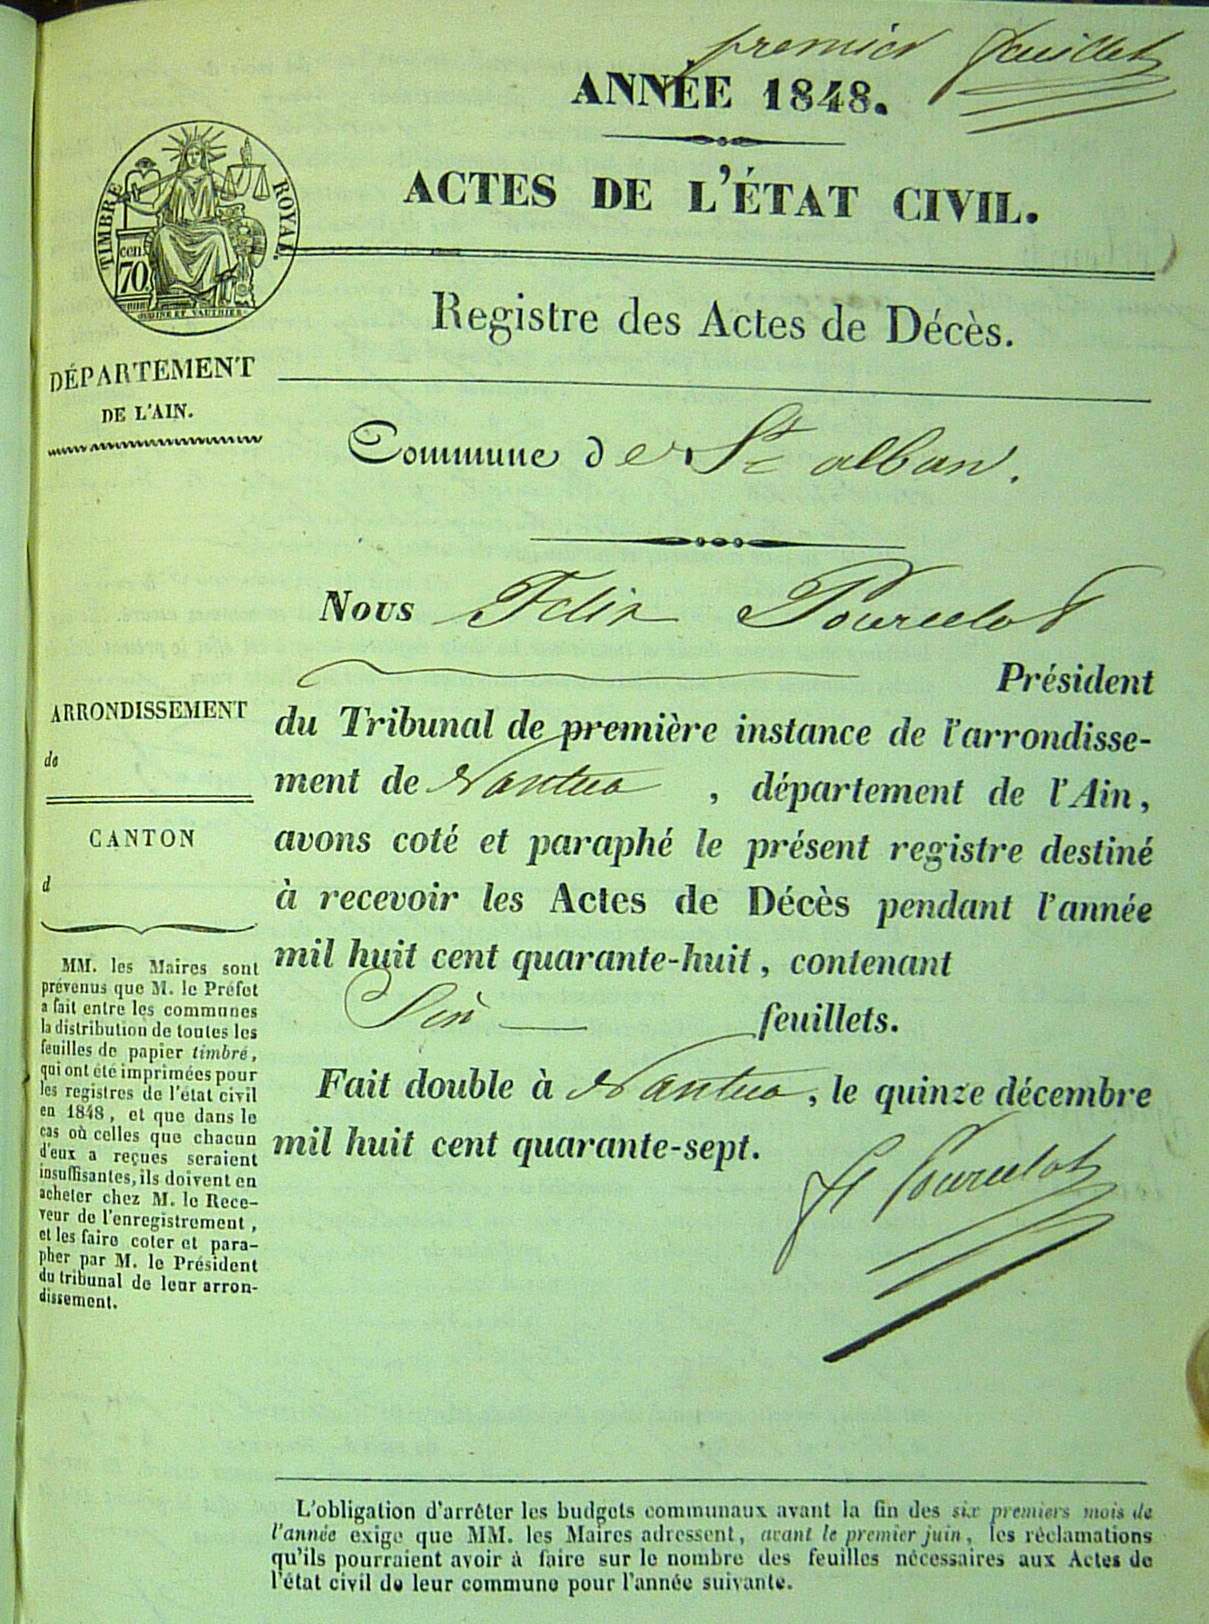 premier feuillet
ANNÉE 1848.
ACTES DE L'ÉTAT CIVIL.
TIMBRE ROYAL.
cen.
70
Registre des Actes de Décès.
DÉPARTEMENT
DE L'AIN.
Commune de St alban.
Nous Felix Pourcelot
Président
du Tribunal de première instance de l'arrondisse-
ment de Nantua, département de l'Ain,
avons coté et paraphé le présent registre destiné
à recevoir les Actes de Décès pendant l'année
mil huit cent quarante-huit, contenant
Six feuillets.
Fait double à Nantua, le quinze décembre
mil huit cent quarante-sept.
Pourcelot
ARRONDISSEMENT
de
CANTON
d
MM. les Maires sont
prévenus que M. le Préfet
a fait entre les communes
la distribution de toutes les
feuilles de papier timbré,
qui ont été imprimées pour
les registres de l'état civil
en 1848, et que dans le
cas où celles que chacun
d'eux a reçues seraient
insuffisantes, ils doivent en
acheter chez M. le Rece-
veur de l'enregistrement,
et les faire coter et para-
pher par M. le Président
du tribunal de leur arron-
dissement.
L'obligation d'arrêter les budgets communaux avant la fin des six premiers mois de
l'année exige que MM. les Maires adressent, avant le premier juin, les réclamations
qu'ils pourraient avoir à faire sur le nombre des feuilles nécessaires aux Actes de
l'état civil de leur commune pour l'année suivante.